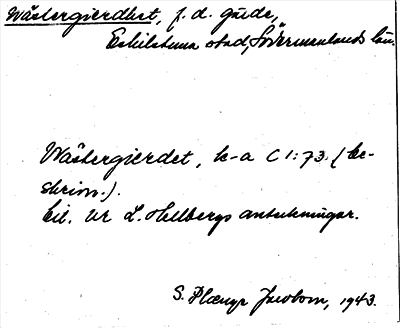 Wästergierdhet, f.d. gärde,
Eskilstuna stad, Södermanlands län.
Wästergierdet, k-a C 1:73. (be-
skrivn.).
Enl. ur L. Hellbergs anteckningar.
S. 1943.